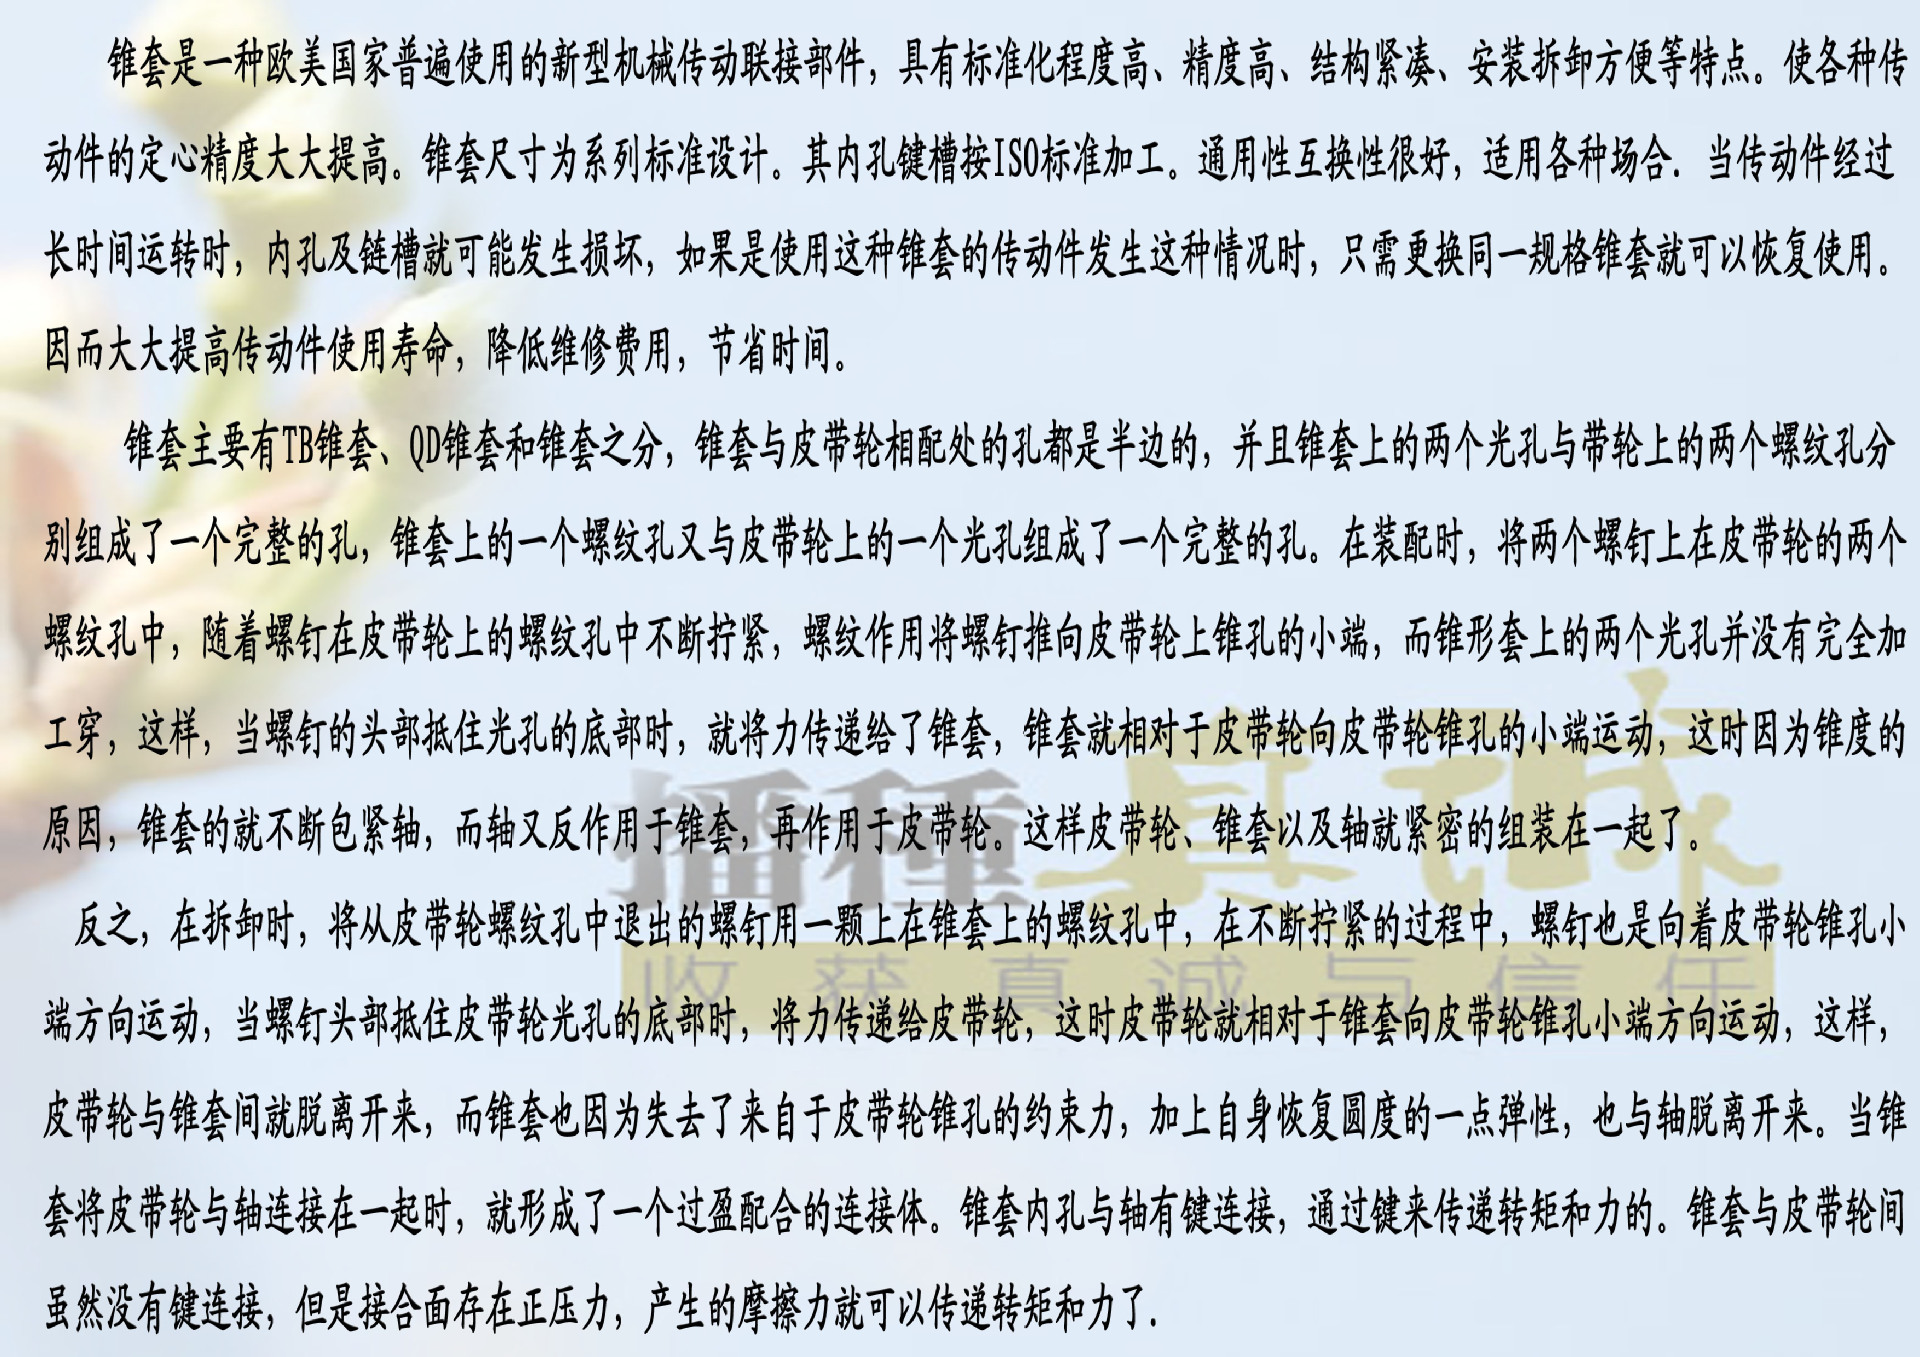 锥套是一种欧美国家普遍使用的新型机械传动联接部件，具有标准化程度高、精度高、结构紧凑、安装拆卸方便等特点。使各种传
动件的定心精度大大提高。锥套尺寸为系列标准设计。其内孔键槽按ISO标准加工。通用性互换性很好，适用各种场合．当传动件经过
长时间运转时，内孔及链槽就可能发生损坏，如果是使用这种锥套的传动件发生这种情况时，只需更换同一规格锥套就可以恢复使用。
因而大大提高传动件使用寿命，降低维修费用，节省时间。
锥套主要有TB锥套、QD锥套和锥套之分，锥套与皮带轮相配处的孔都是半边的，并且锥套上的两个光孔与带轮上的两个螺纹孔分
别组成了一个完整的孔，锥套上的一个螺纹孔又与皮带轮上的一个光孔组成了一个完整的孔。在装配时，将两个螺钉上在皮带轮的两个
螺纹孔中，随着螺钉在皮带轮上的螺纹孔中不断拧紧，螺纹作用将螺钉推向皮带轮上锥孔的小端，而锥形套上的两个光孔并没有完全加
工穿，这样，当螺钉的头部抵住光孔的底部时，就将力传递给了锥套，锥套就相对于皮带轮向皮带轮锥孔的小端运动，这时因为锥度的
原因，锥套的就不断包紧轴，而轴又反作用于锥套，再作用于皮带轮。这样皮带轮、锥套以及轴就紧密的组装在一起了。
反之，在拆卸时，将从皮带轮螺纹孔中退出的螺钉用一颗上在锥套上的螺纹孔中，在不断拧紧的过程中，螺钉也是向着皮带轮锥孔小
端方向运动，当螺钉头部抵住皮带轮光孔的底部时，将力传递给皮带轮，这时皮带轮就相对于锥套向皮带轮锥孔小端方向运动，这样，
皮带轮与锥套间就脱离开来，而锥套也因为失去了来自于皮带轮锥孔的约束力，加上自身恢复圆度的一点弹性，也与轴脱离开来。当锥
套将皮带轮与轴连接在一起时，就形成了一个过盈配合的连接体。锥套内孔与轴有键连接，通过键来传递转矩和力的。锥套与皮带轮间
虽然没有键连接，但是接合面存在正压力，产生的摩擦力就可以传递转矩和力了．
播種真诚
收获真诚与信任